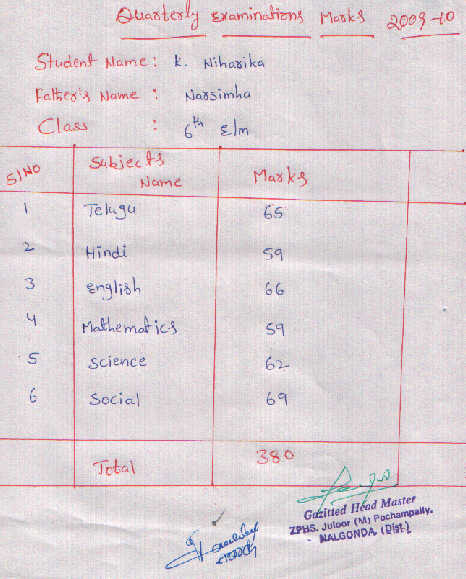 Quarterly Examinations Marks 2009-10
Student Name : K. Niharika
Father's Name : Narsimha
Class : 6th E/m
Sl NO Subjects Name Marks
1 Telugu 65
2 Hindi 59
3 English 66
4 Mathematics 59
5 Science 62
6 Social 69
Total 380
Gazitted Head Master
ZPHS. Juloor (M) Pochampally.
NALGONDA. (Dist.)